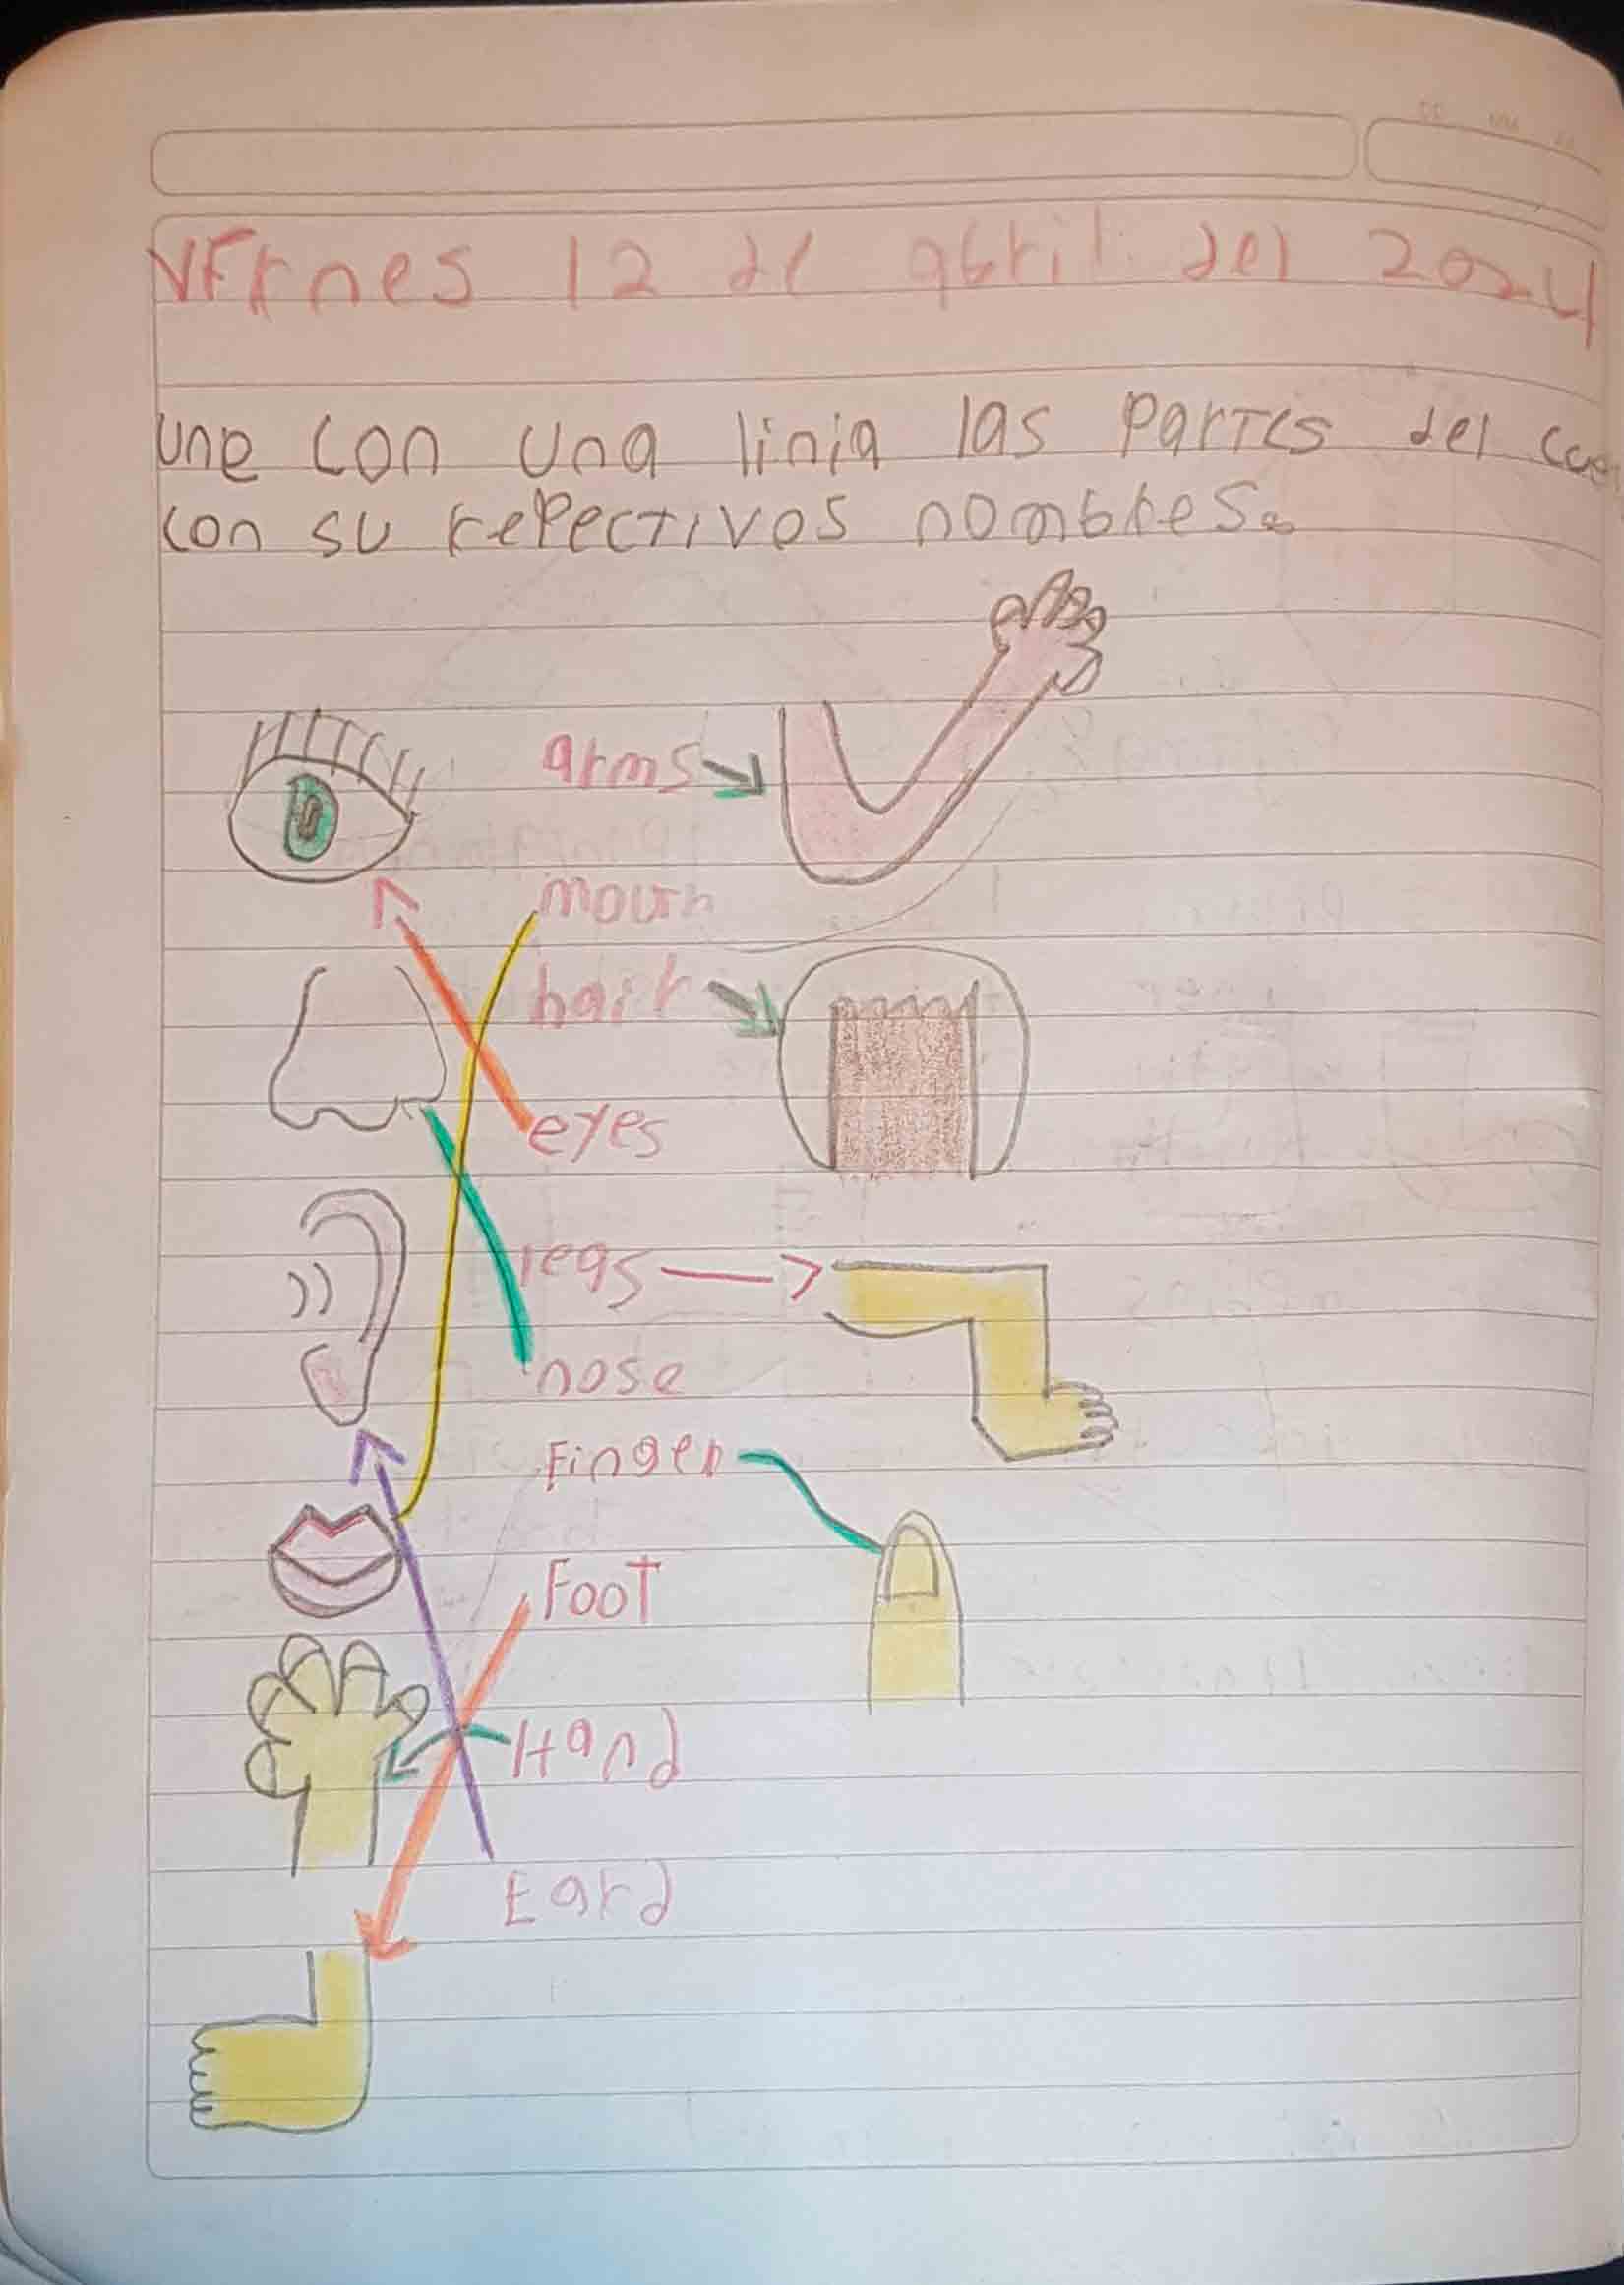 VFrnes 12 de abril del 2024
une con una linia las partes del
con su repectivos nombres.
arms
mouth
hair
eyes
legs
nose
Finger
Foot
Hand
Eard